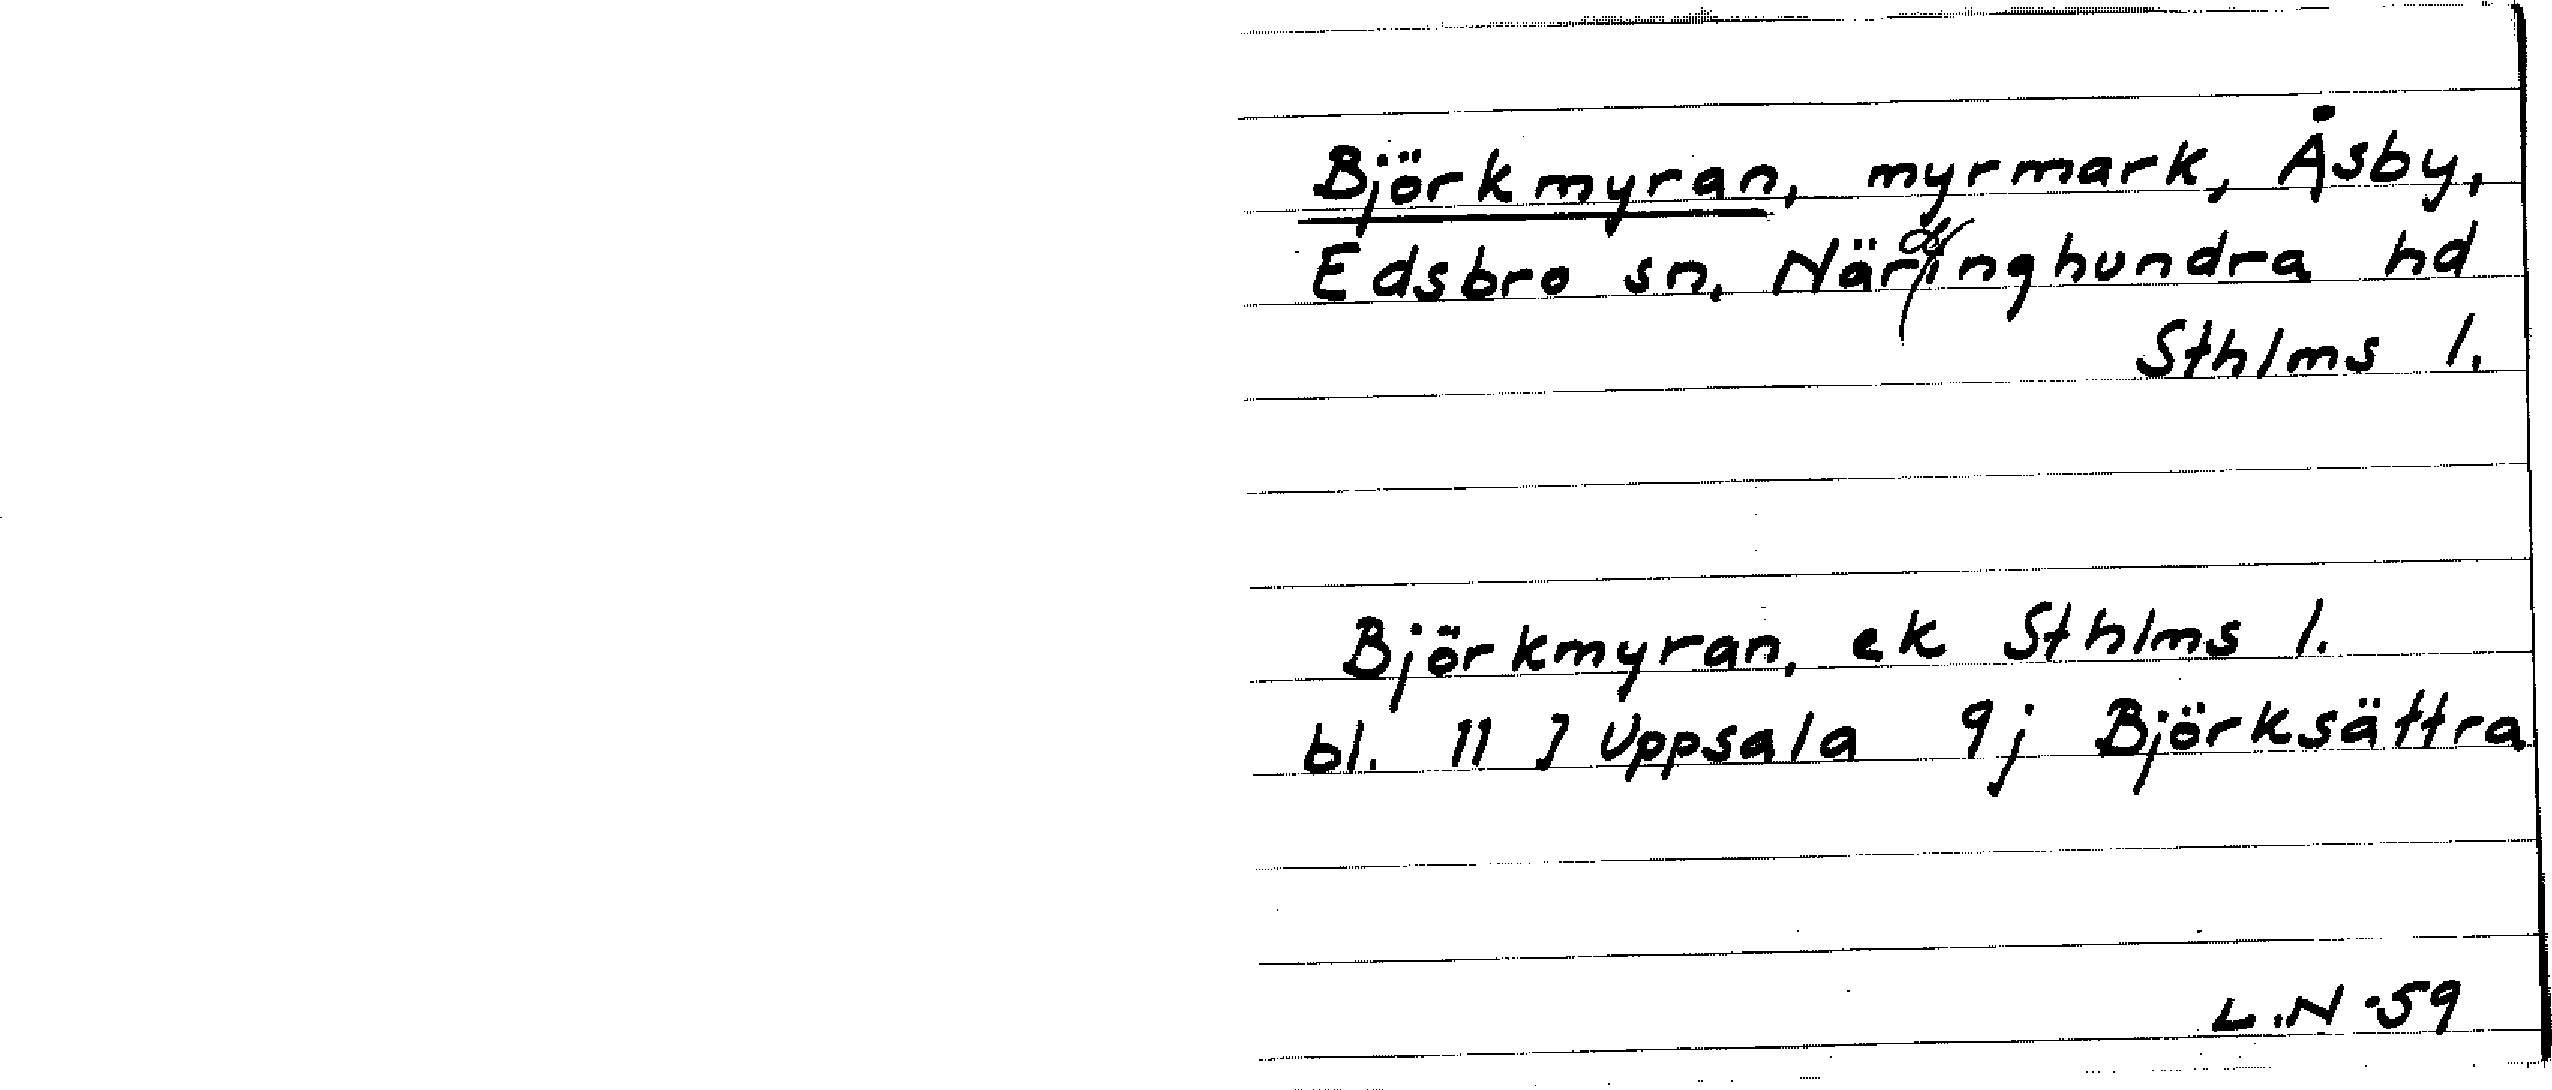 Björkmyran, myrmark, Åsby,
Edsbro sn. Närdinghundra hd
Sthlms l.
Björkmyran, ek Sthlms l.
bl. 11 J Uppsala 9j Björksättra
L.N -59